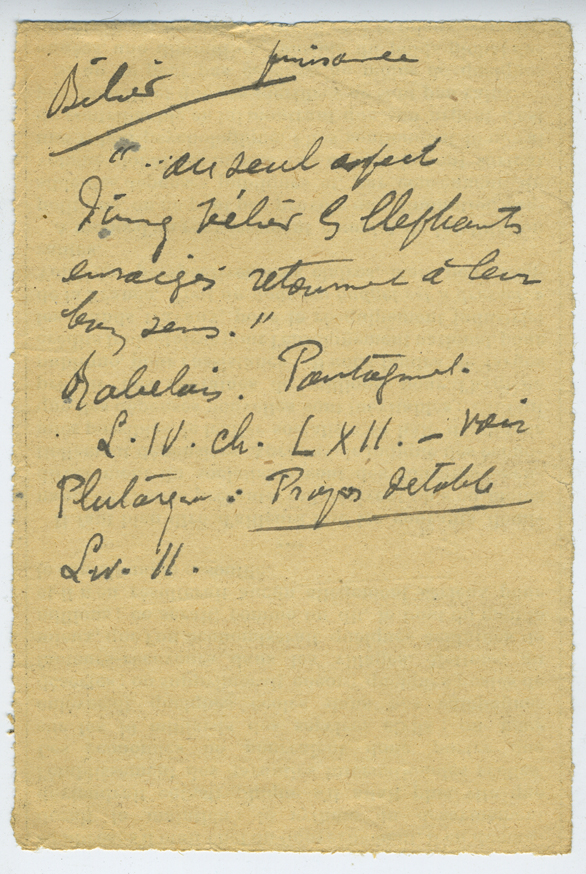 Bélier puissance
"...au seul aspect
d'ung bélier les Elephants
enraigés retournent à leur
bon sens."
Rabelais. Pantagruel.
L. IV. ch. LXII. – voir
Plutarque : Propos de table
Liv. II.